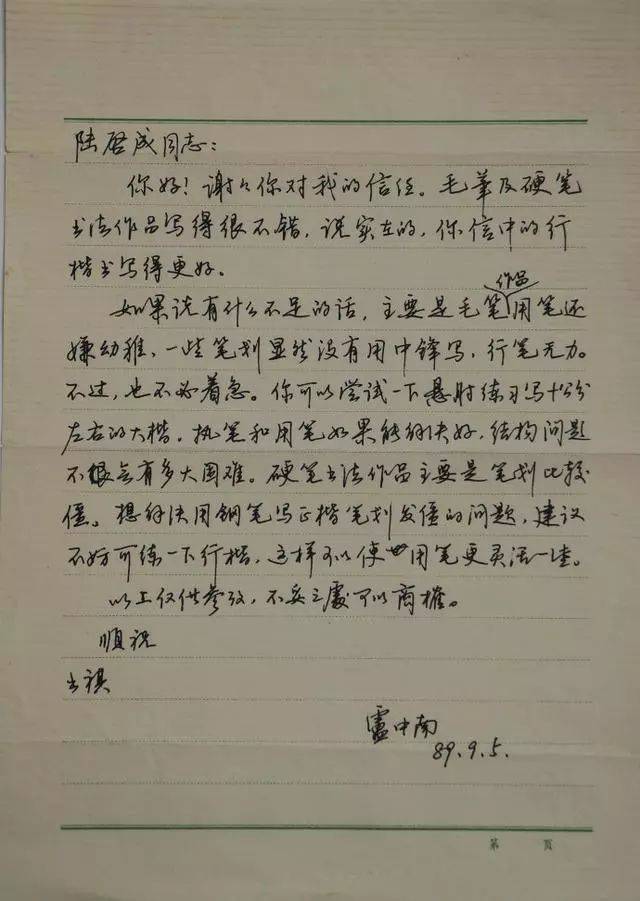 陆启成同志：
你好！谢々你对我的信任。毛笔及硬笔
书法作品写得很不错，说实在的，你信中的行
楷书写得更好。
如果说有什么不足的话，主要是毛笔作品用笔还
嫌幼稚，一些笔划显然没有用中锋写，行笔无力。
不过，也不必着急。你可以尝试一下悬肘练习写十公分
左右的大楷。执笔和用笔如果能解决好，结构问题
不会有多大困难。硬笔书法作品主要是笔划比较
僵。想解决用钢笔写正楷笔划发僵的问题，建议
不妨可练一下行楷，这样可以使用笔更灵活一些。
以上仅供参考，不妥之处可以商榷。
顺祝
书祺
卢中南
89.9.5.
第 页